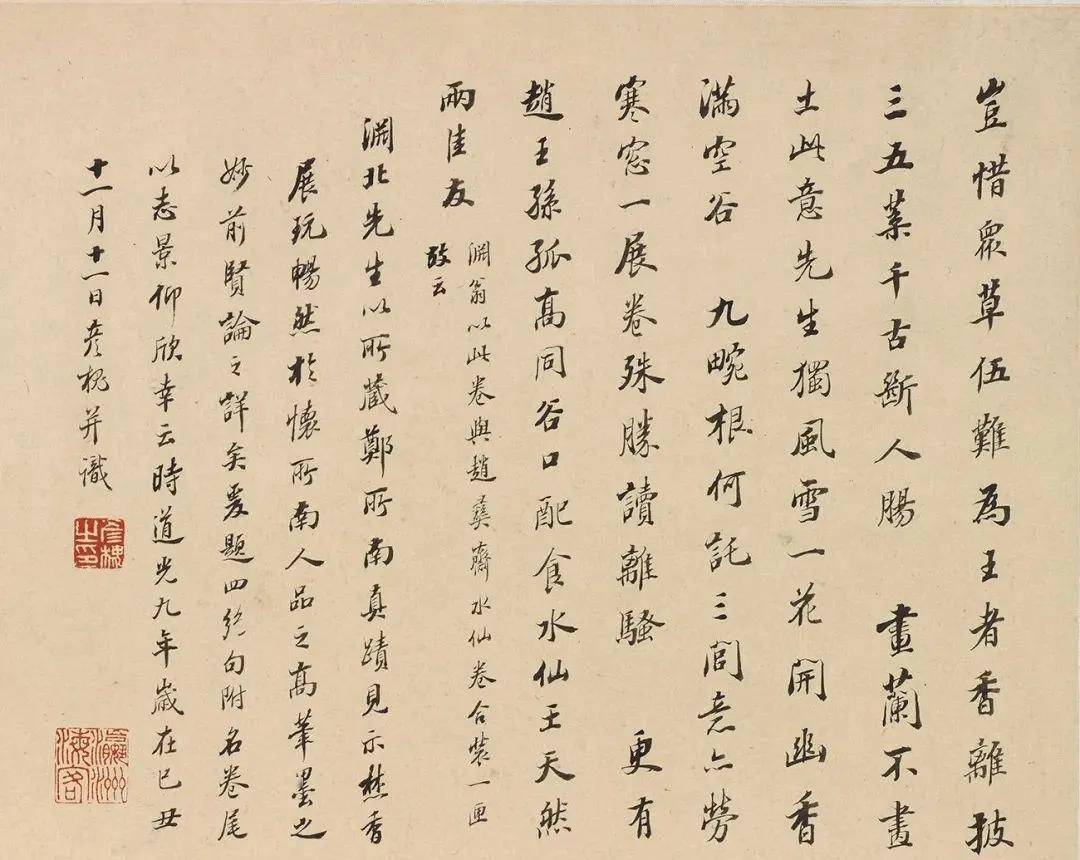 豈惜眾草伍難為王者香離披
三五葉千古斷人腸 畫蘭不畫
土此意先生獨風雪一花開幽香
滿空谷 九畹根何託三閭意亦勞
寒窓一展卷殊勝讀離騷 更有
趙王孫孤高同谷口配食水仙王天然
兩佳友
淵翁以此卷與趙彝齋水仙卷合裝一匣
故云
淵北先生以所藏鄭所南真蹟見示焚香
展玩暢然於懷所南人品之高筆墨之
妙前賢論之詳矣爰題四絕句附名卷尾
以志景仰欣幸云時道光九年歲在己丑
十一月十一日彦槐并識
彦槐之印
瀛洲海客